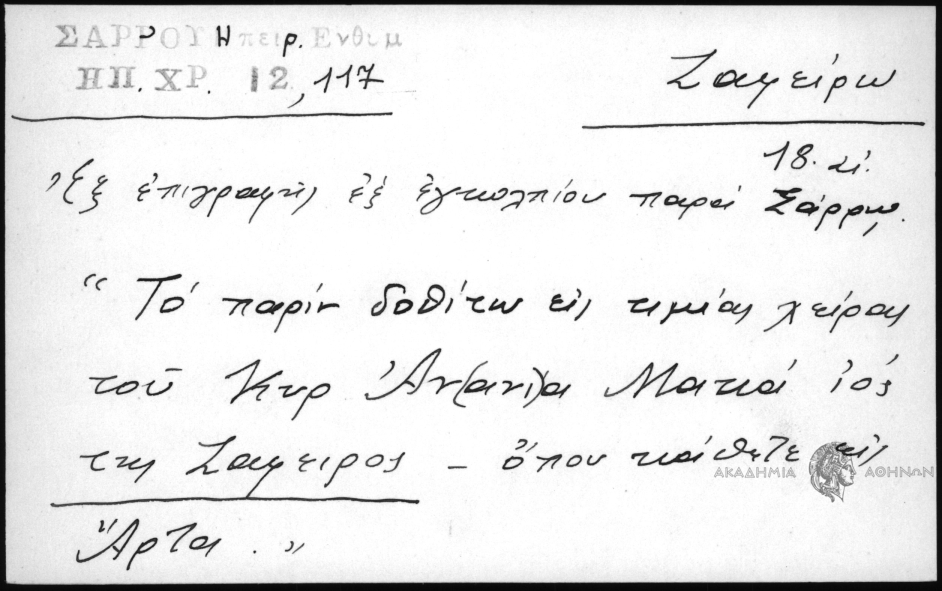 ΣΑΡΡΟΥ Ηπειρ. Ενθυμ
ΗΠ. ΧΡ. 12, 117
Ζαφείρω
18. αἰ.
ἐξ ἐπιγραφῆς ἐξ ἐγκολπίου παρά Σάρρῳ.
"Τό παρὶν δοθίτω εἰς τιμίας χείρας
τοῦ Κυρ Ἀν(ανί)α Ματκά ἱός
της Ζαφειρος – ὅπου κάθετε εἰς
Ἄρτα."
ΑΚΑΔΗΜΙΑ ΑΘΗΝΩΝ